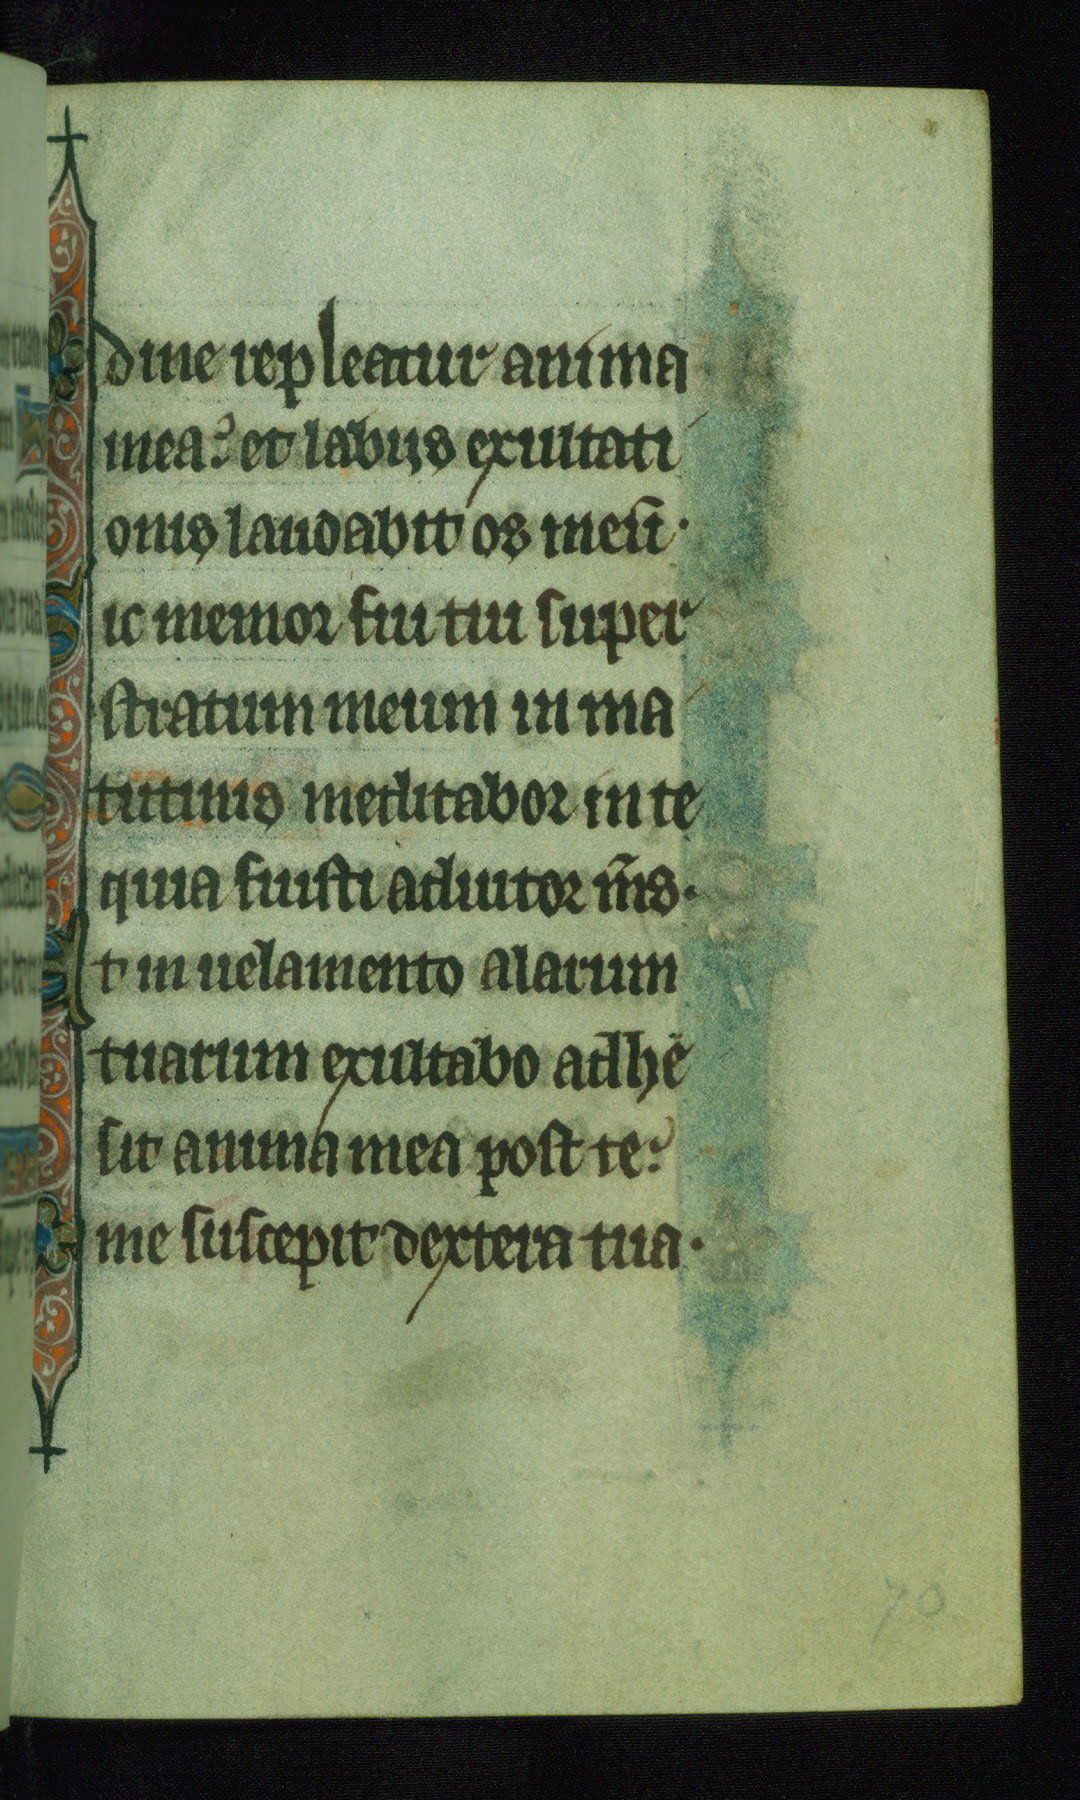 dine repleatur anima
mea: et labijs exultati
onis laudabit os meū.
Sic memor fui tui super
stratum meum in ma
tutinis meditabor in te
quia fuisti adiutor m̄s.
Et in uelamento alarum
tuarum exultabo adhe
sit anima mea post te:
me suscepit dextera tua.
70